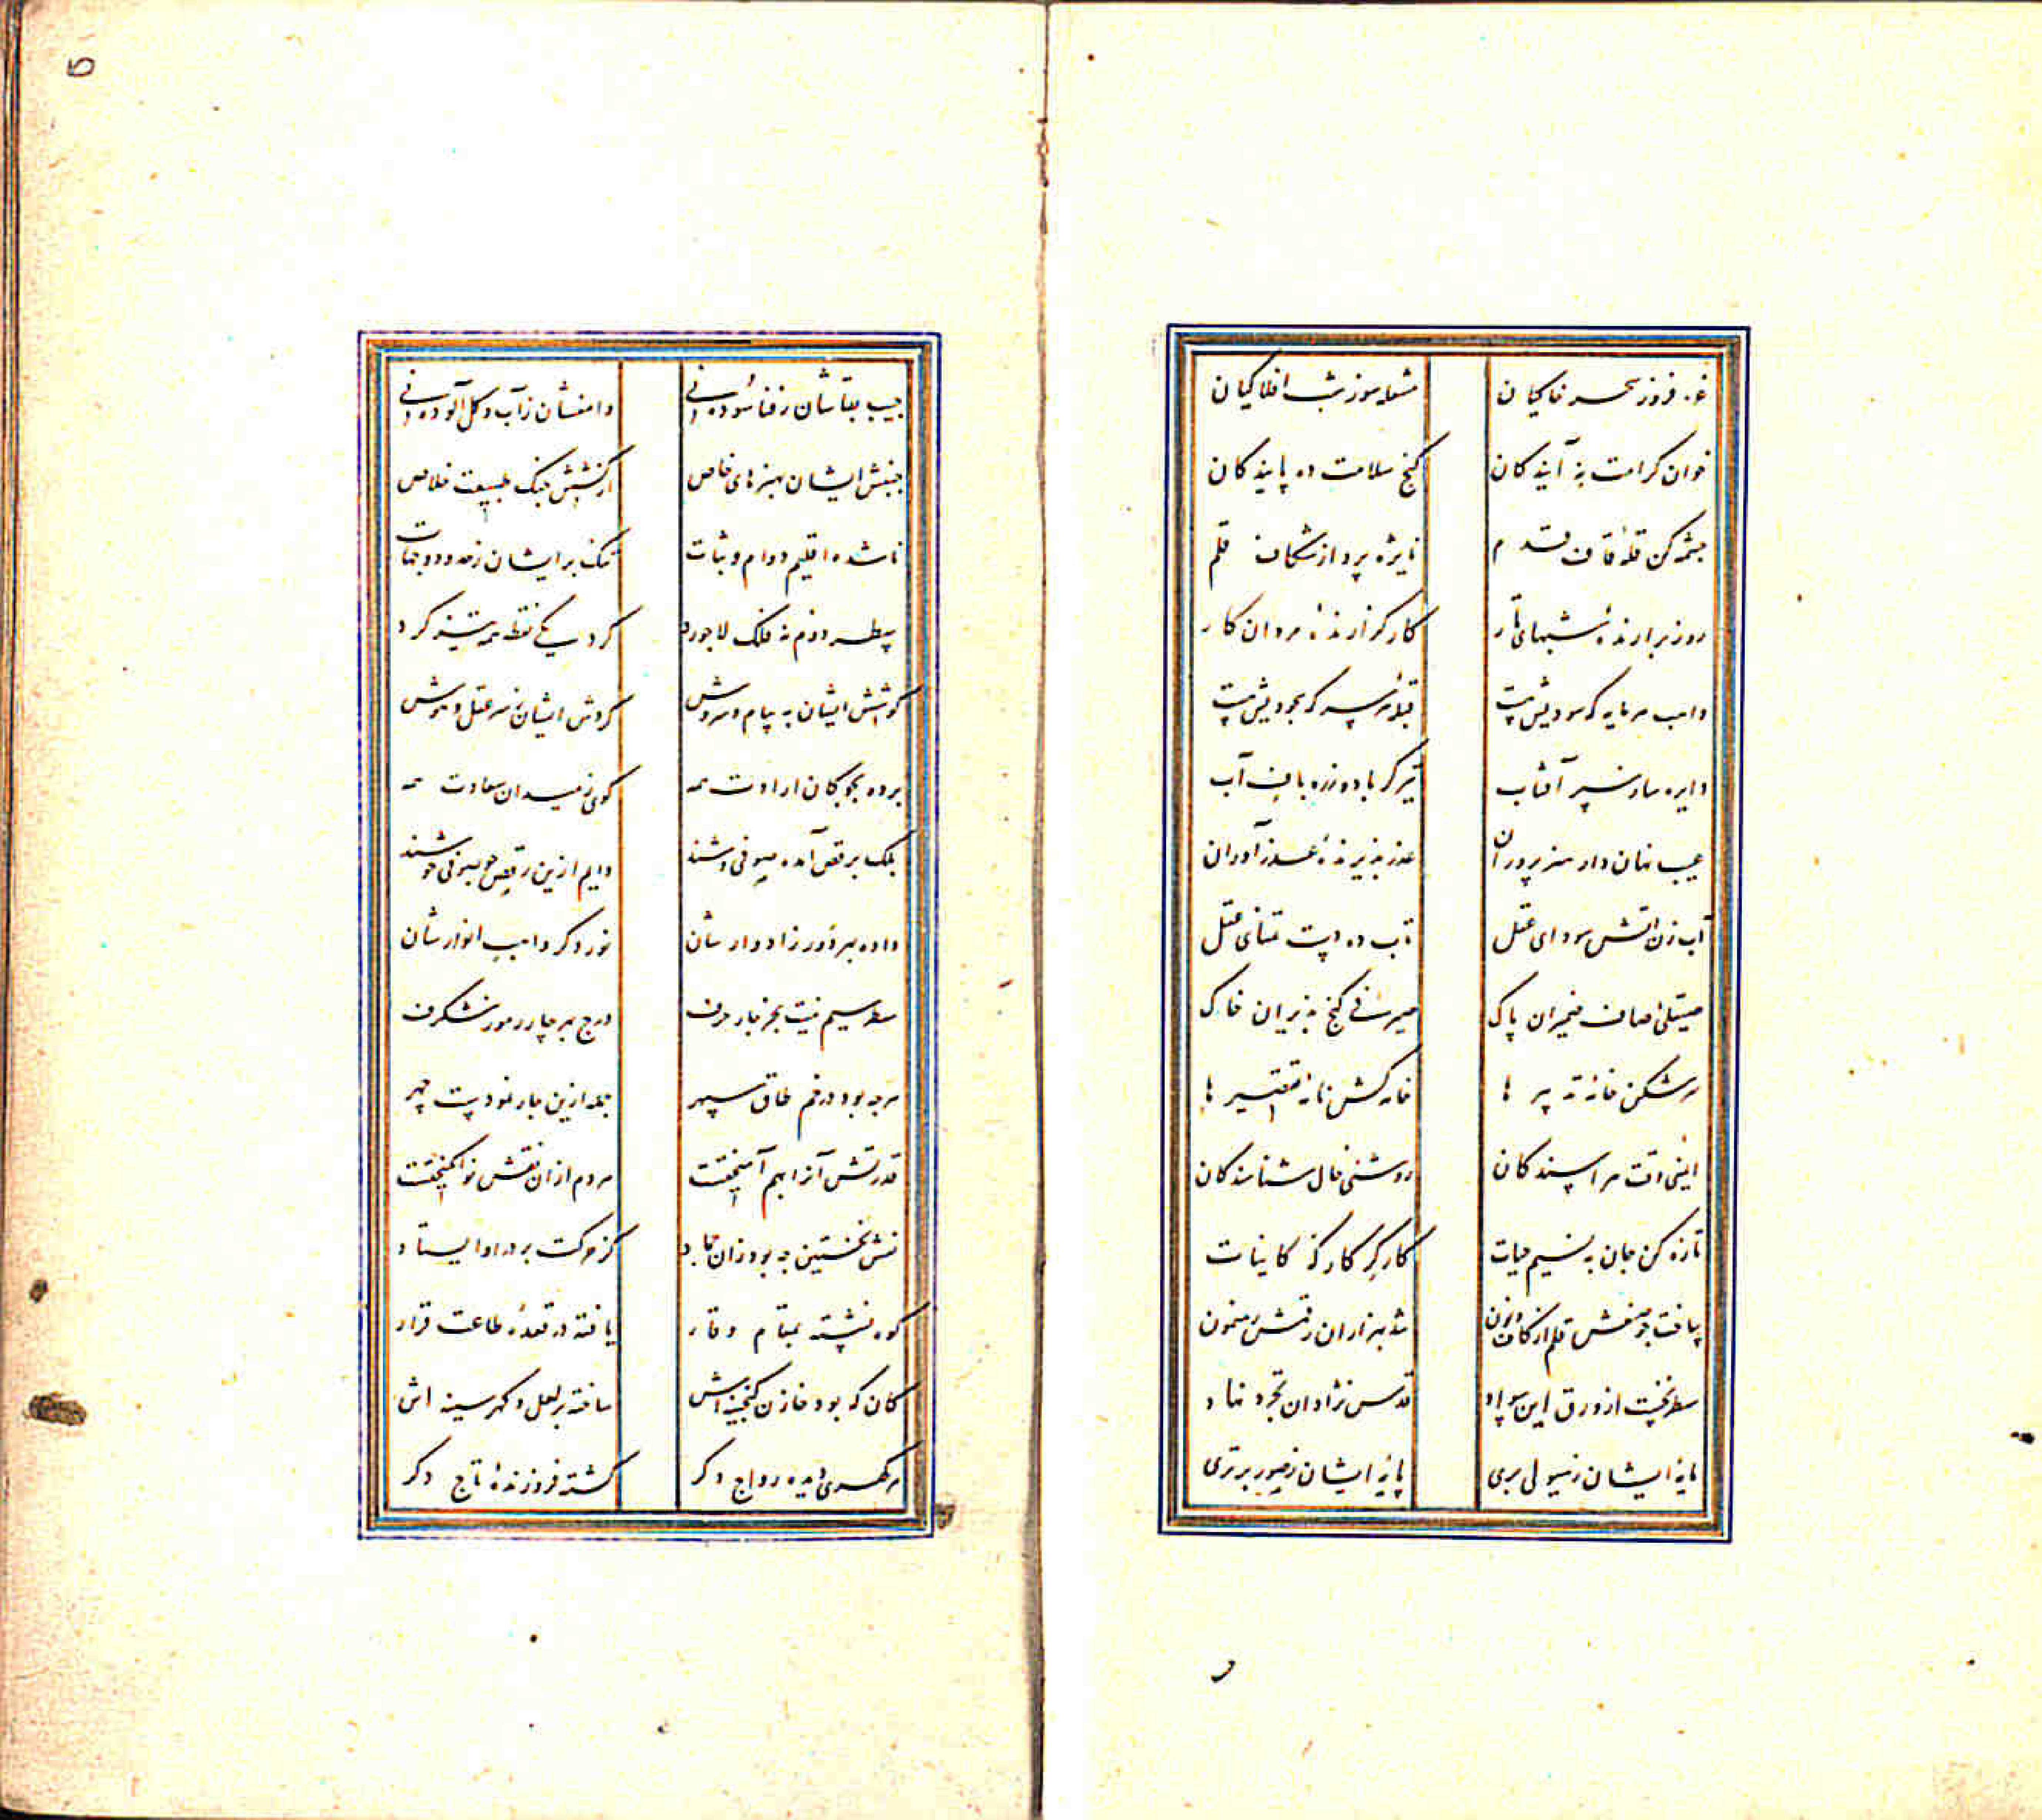 غره فروز سحر خاکیان مشعله سوز شب افلاکیان
خوان کرامت نه آیندکان کنج سلامت ده پایندکان
چشمه کن قلهٔ قاف قدم نایژه پرداز شکاف قلم
روز برارندهٔ شبهای تار کارکزارندهٔ مردان کار
واهب هر مایه که سودیش هست قبلهٔ هر سر که بجودیش هست
دایره ساز سپر آفتاب تیرکر باد و زره باف آب
عیب نهان دار هنرپروران عذر پذیرندهٔ عذرآوران
آب زن آتش سودای عقل تاب ده دست تمنای عقل
صیقلی صاف ضمیران پاک صیرفی کنج پذیران خاک
سرشکن خامهٔ تدبیرها خامه کش نامهٔ تقصیرها
ایمنی وقت هراسندکان روشنی حال شناسندکان
تازه کن جان به نسیم حیات کارکر کارکه کاینات
یافت چو جنبش قلم از کاف و نون شد بهزاران رقمش رهنمون
سطر نخست از ورق این سواد قدس نژادان تجرد نهاد
مایهٔ ایشان ز هیولی بری پایهٔ ایشان ز صور برتری
جیب بقاشان ز فنا سوده نی دامنشان ز آب و کل آلوده نی
جنبش ایشان بهنرهای خاص از کشش جنک طبیعت خلاص
ناشده اقلیم دوام و ثبات تنک بر ایشان ز حدود و جهات
سطر دوم نه فلک لاجورد کرد یکی نقطه همه تیزکرد
کوشش ایشان به پیام و سروش کردش ایشان ز سر عقل و هوش
برده بچوکان ارادت همه کوی ز میدان سعادت همه
بلک برقص آمده صوفی وشند دایم ازین رقص چو صوفی خوشند
داده بهر دور ز ادوارشان نور دکر واهب انوارشان
سطر سیم نیست بجز چار حرف درج بهر چار رموز شکرف
هرچه بود در خم طاق سپهر جمله ازین چار نمودست چهر
قدرتش آنرا بهم آمیختست هر دم از آن نقش نو انکیختست
نقش نخستین چه بود زان جماد کز حرکت بر در او ایستاد
کوه نشسته بمقام وقار یافته در قعدهٔ طاعت قرار
کان که بود خازن کنجینه اش ساخته پر لعل و کهر سینه اش
هر کهری دیده رواج دکر کشته فروزندهٔ تاج دکر